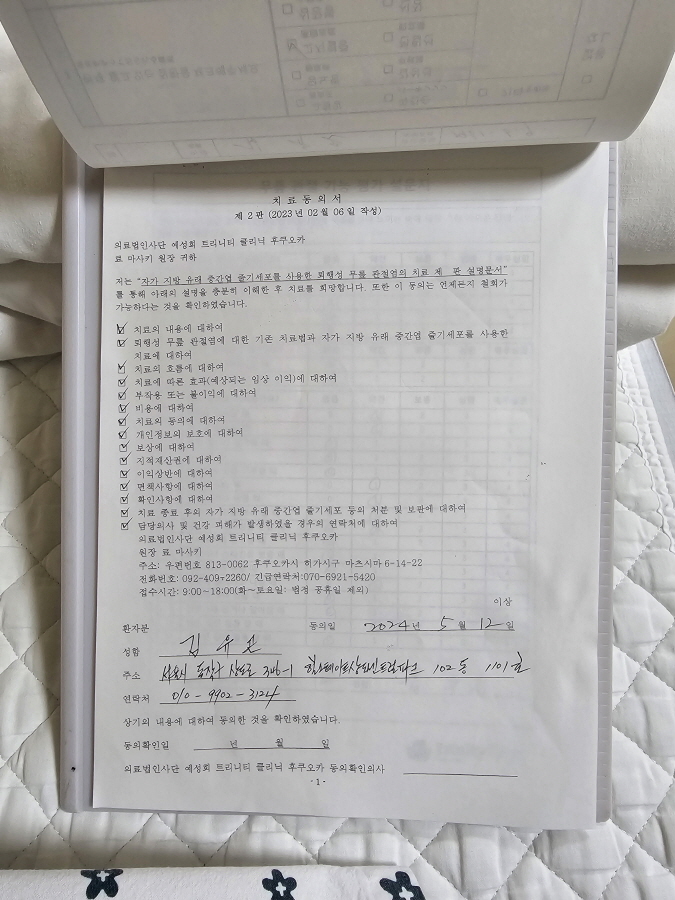 치료동의서
제 2판 (2023년 02월 06일 작성)
의료법인사단 예성회 트리니티 클리닉 후쿠오카
료 마사키 원장 귀하
저는 "자가 지방 유래 중간엽 줄기세포를 사용한 퇴행성 무릎 관절염의 치료 제 판 설명문서"
를 통해 아래의 설명을 충분히 이해한 후 치료를 희망합니다. 또한 이 동의는 언제든지 철회가
가능하다는 것을 확인하였습니다.
☑ 치료의 내용에 대하여
☑ 퇴행성 무릎 관절염에 대한 기존 치료법과 자가 지방 유래 중간엽 줄기세포를 사용한
치료에 대하여
☑ 치료의 흐름에 대하여
☑ 치료에 따른 효과(예상되는 임상 이익)에 대하여
☑ 부작용 또는 불이익에 대하여
☑ 비용에 대하여
☑ 치료의 동의에 대하여
☑ 개인정보의 보호에 대하여
☑ 보상에 대하여
☑ 지적재산권에 대하여
☑ 이익상반에 대하여
☑ 면책사항에 대하여
☑ 확인사항에 대하여
☑ 치료 종료 후의 자가 지방 유래 중간엽 줄기세포 등의 처분 및 보관에 대하여
☑ 담당의사 및 건강 피해가 발생하였을 경우의 연락처에 대하여
의료법인사단 예성회 트리니티 클리닉 후쿠오카
원장 료 마사키
주소: 우편번호 813-0062 후쿠오카시 히가시구 마츠시마 6-14-22
전화번호: 092-409-2260/ 긴급연락처:070-6921-5420
접수시간: 9:00~18:00(화~토요일: 법정 공휴일 제외)
이상
환자분 동의일 2024년 5월 12일
성함 김유
주소 서울시 동작구 상도로 346-1 힐스테이트상도센트럴파크 102동 1101호
연락처 010-9902-3124
상기의 내용에 대하여 동의한 것을 확인하였습니다.
동의확인일 년 월 일
의료법인사단 예성회 트리니티 클리닉 후쿠오카 동의확인의사
-1-